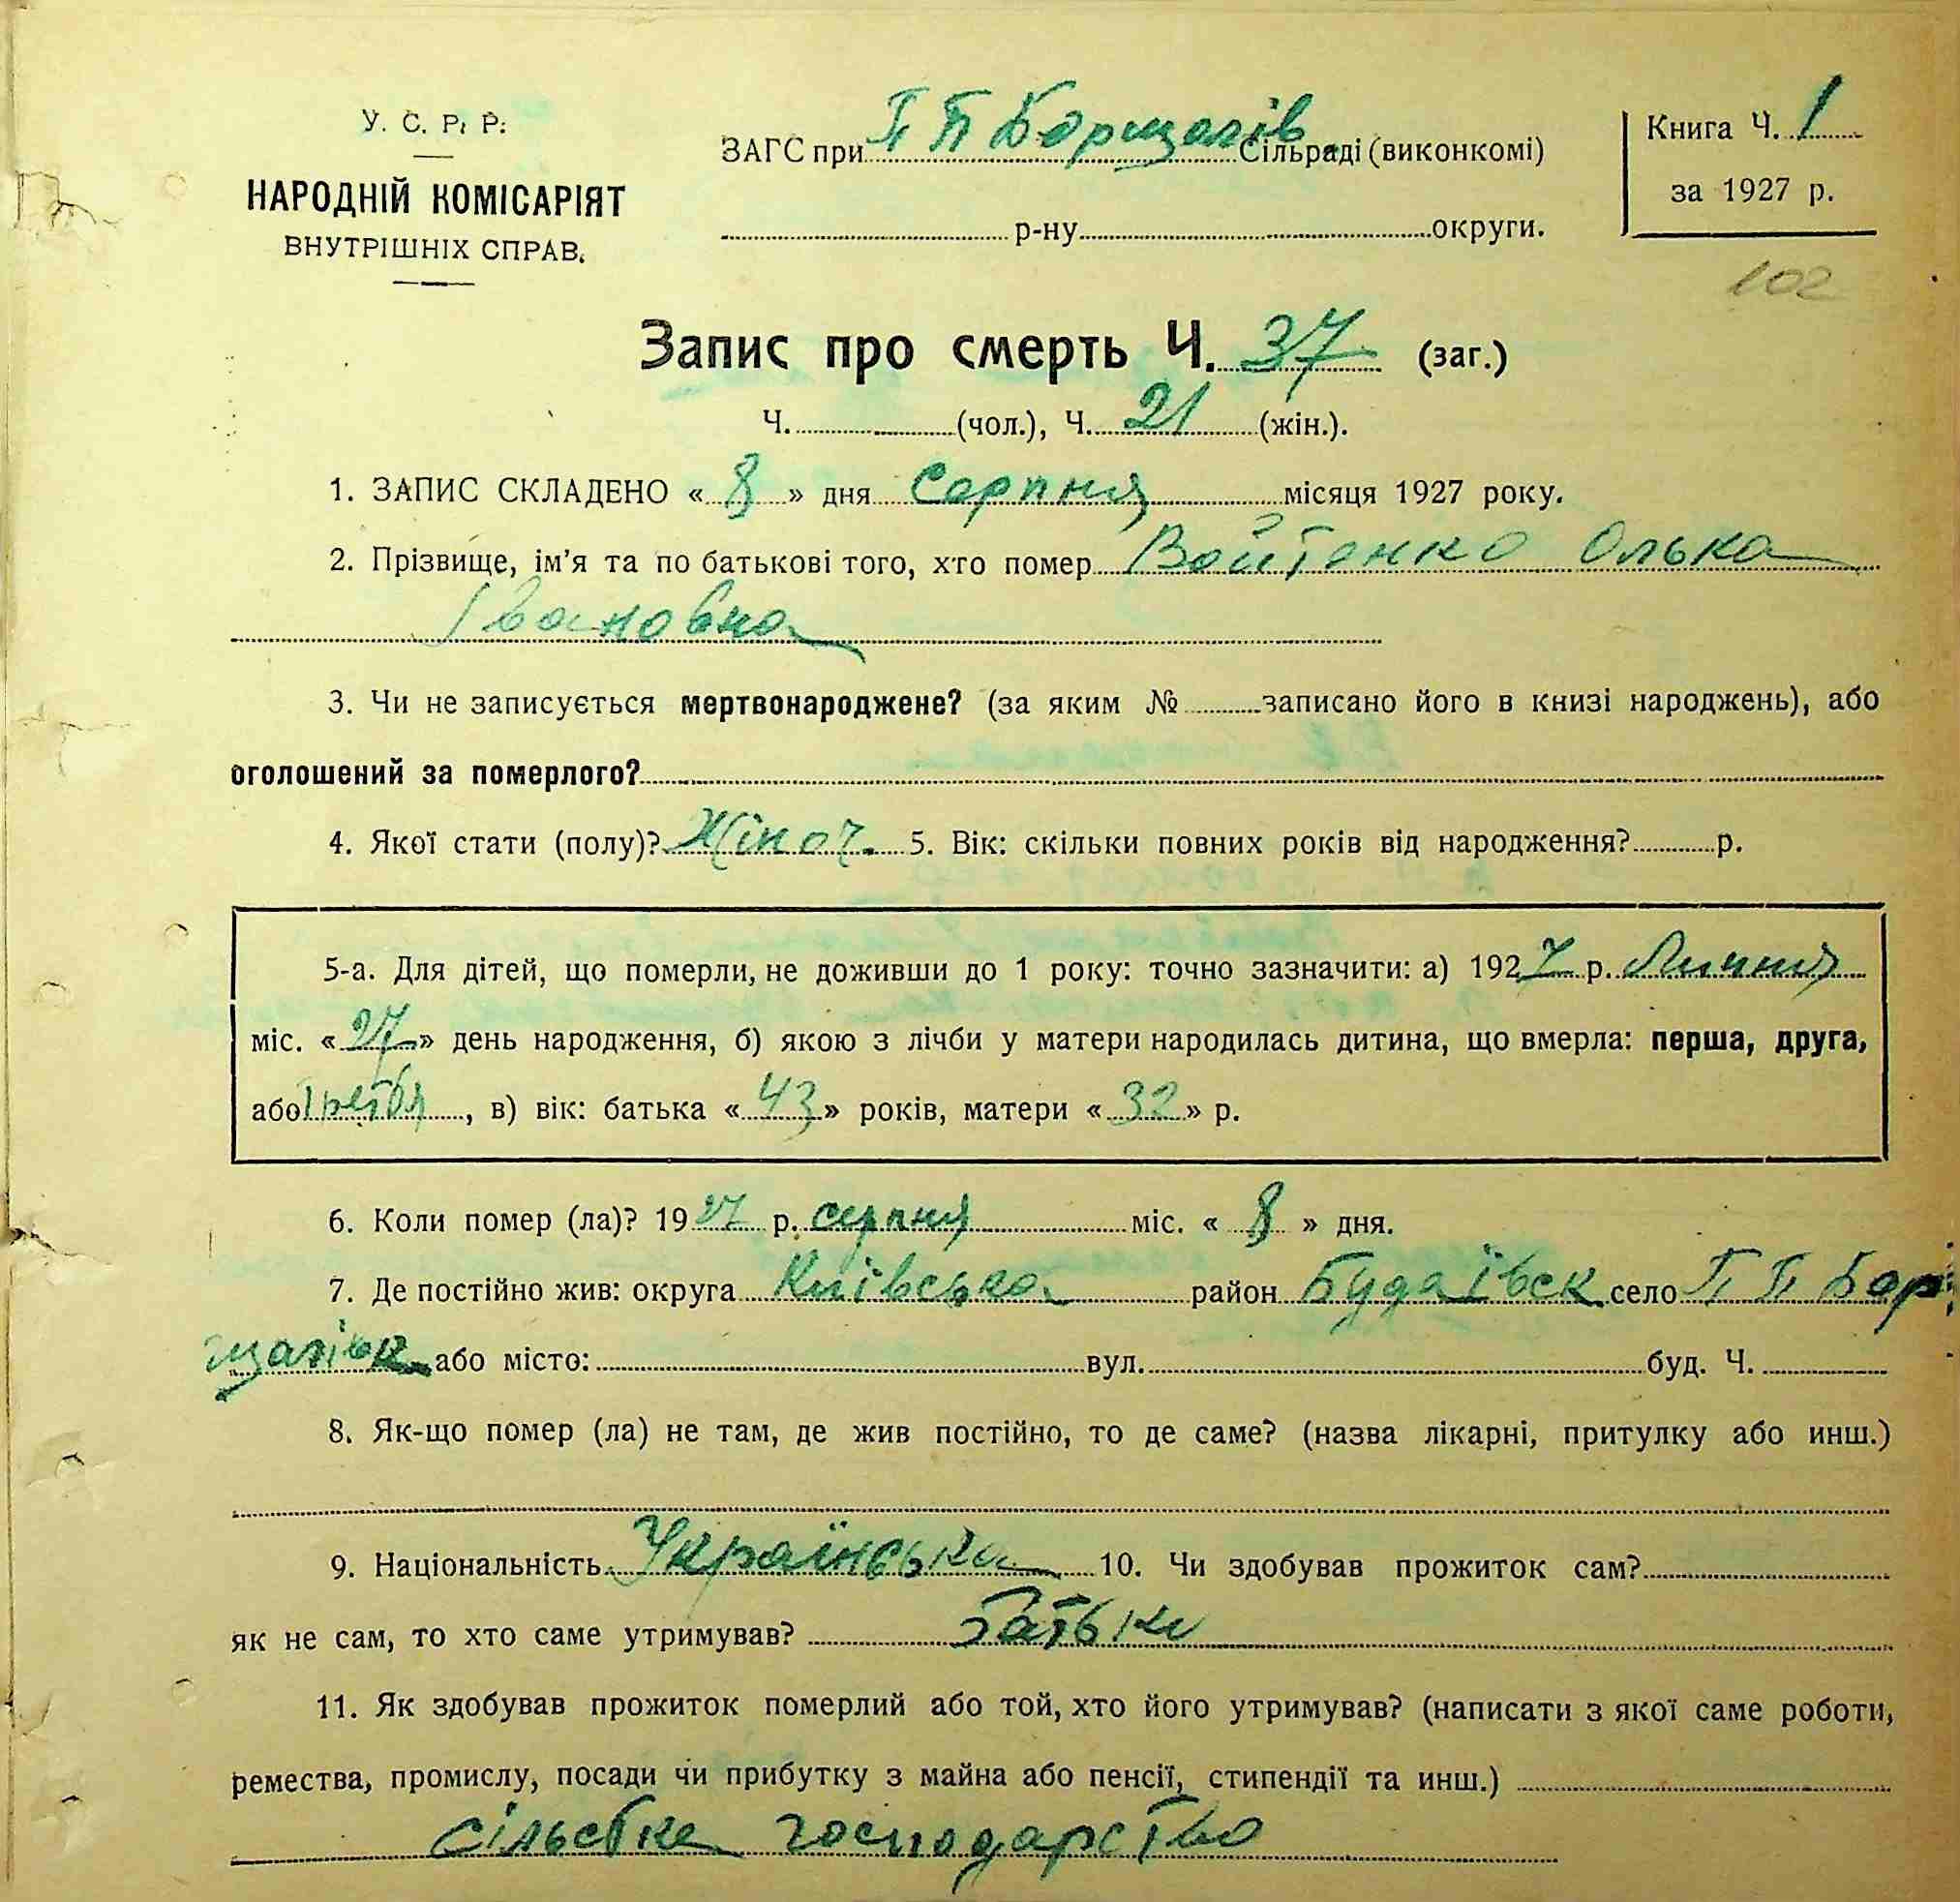 У. С. Р. Р.
НАРОДНІЙ КОМІСАРІЯТ
ВНУТРІШНІХ СПРАВ.
ЗАГС при П П Борщагів Сільраді (виконкомі)
р-ну округи.
Книга Ч. 1
за 1927 р.
102
Запис про смерть Ч. 37 (заг.)
Ч. (чол.), Ч. 21 (жін.).
1. ЗАПИС СКЛАДЕНО « 8 » дня Серпня місяця 1927 року.
2. Прізвище, ім’я та по батькові того, хто помер Войтенко Олька
Івановна
3. Чи не записується мертвонароджене? (за яким № записано його в книзі народжень), або
оголошений за померлого?
4. Якої стати (полу)? Жіноч. 5. Вік: скільки повних років від народження? р.
5-а. Для дітей, що померли, не доживши до 1 року: точно зазначити: а) 1927 р. Липня
міс. « 27 » день народження, б) якою з лічби у матери народилась дитина, що вмерла: перша, друга,
або третья, в) вік: батька « 43 » років, матери « 32 » р.
6. Коли помер (ла)? 1927 р. серпня міс. « 8 » дня.
7. Де постійно жив: округа Київська район Будаївск село П П Бор
щагівк або місто: вул. буд. Ч.
8. Як-що помер (ла) не там, де жив постійно, то де саме? (назва лікарні, притулку або инш.)
9. Національність Українська 10. Чи здобував прожиток сам?
як не сам, то хто саме утримував? батьки
11. Як здобував прожиток померлий або той, хто його утримував? (написати з якої саме роботи,
ремества, промислу, посади чи прибутку з майна або пенсії, стипендії та инш.)
сільске господарство